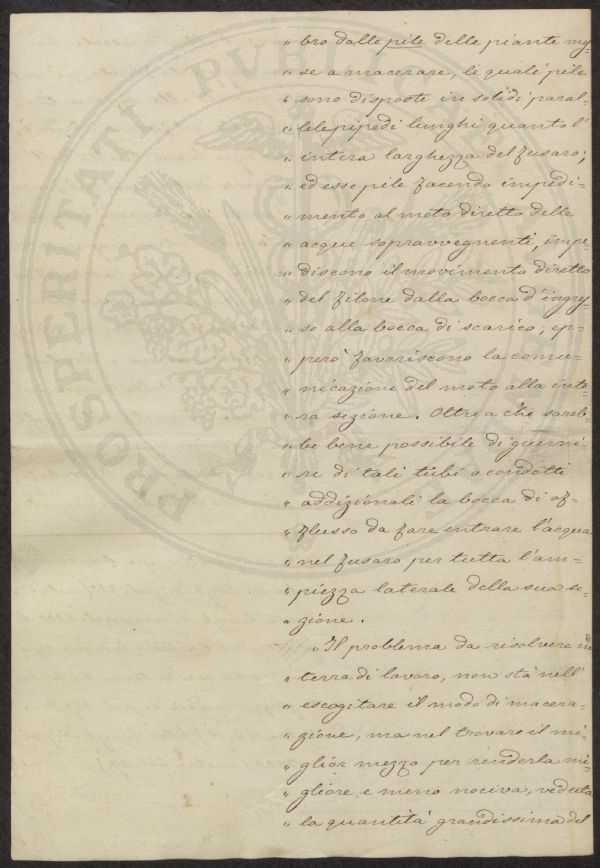 PROSPERITATI PVBLICAE
" bro dalle pile delle piante mes-
" se a macerare, le quali pile
" sono disposte in solidi paral-
" lelepipedi lunghi quanto l'
" intera larghezza del fusaro;
" ed esse pile facendo impedi-
" mento al moto diretto delle
" acque sopravvegnenti, impe
" discono il movimento diretto
" del filone dalla bocca d'ingres-
" so alla bocca di scarico; ep-
" però favoriscono la comu-
" nicazione del moto alla inte-
" ra sezione. Oltre a che sareb-
" be bene possibile di guerni-
" re di tali tubi o condotti
" addizionali la bocca di af-
" flusso da fare entrare l'acqua
" nel fusaro per tutta l'am-
" piezza laterale della sua se-
" zione.
" Il problema da risolvere in
" terra di lavoro, non stà nell'
" escogitare il modo di macera-
" zione, ma nel trovare il mi-
" glior mezzo per renderla mi-
" gliore e meno nociva, veduta
" la quantità grandissima del